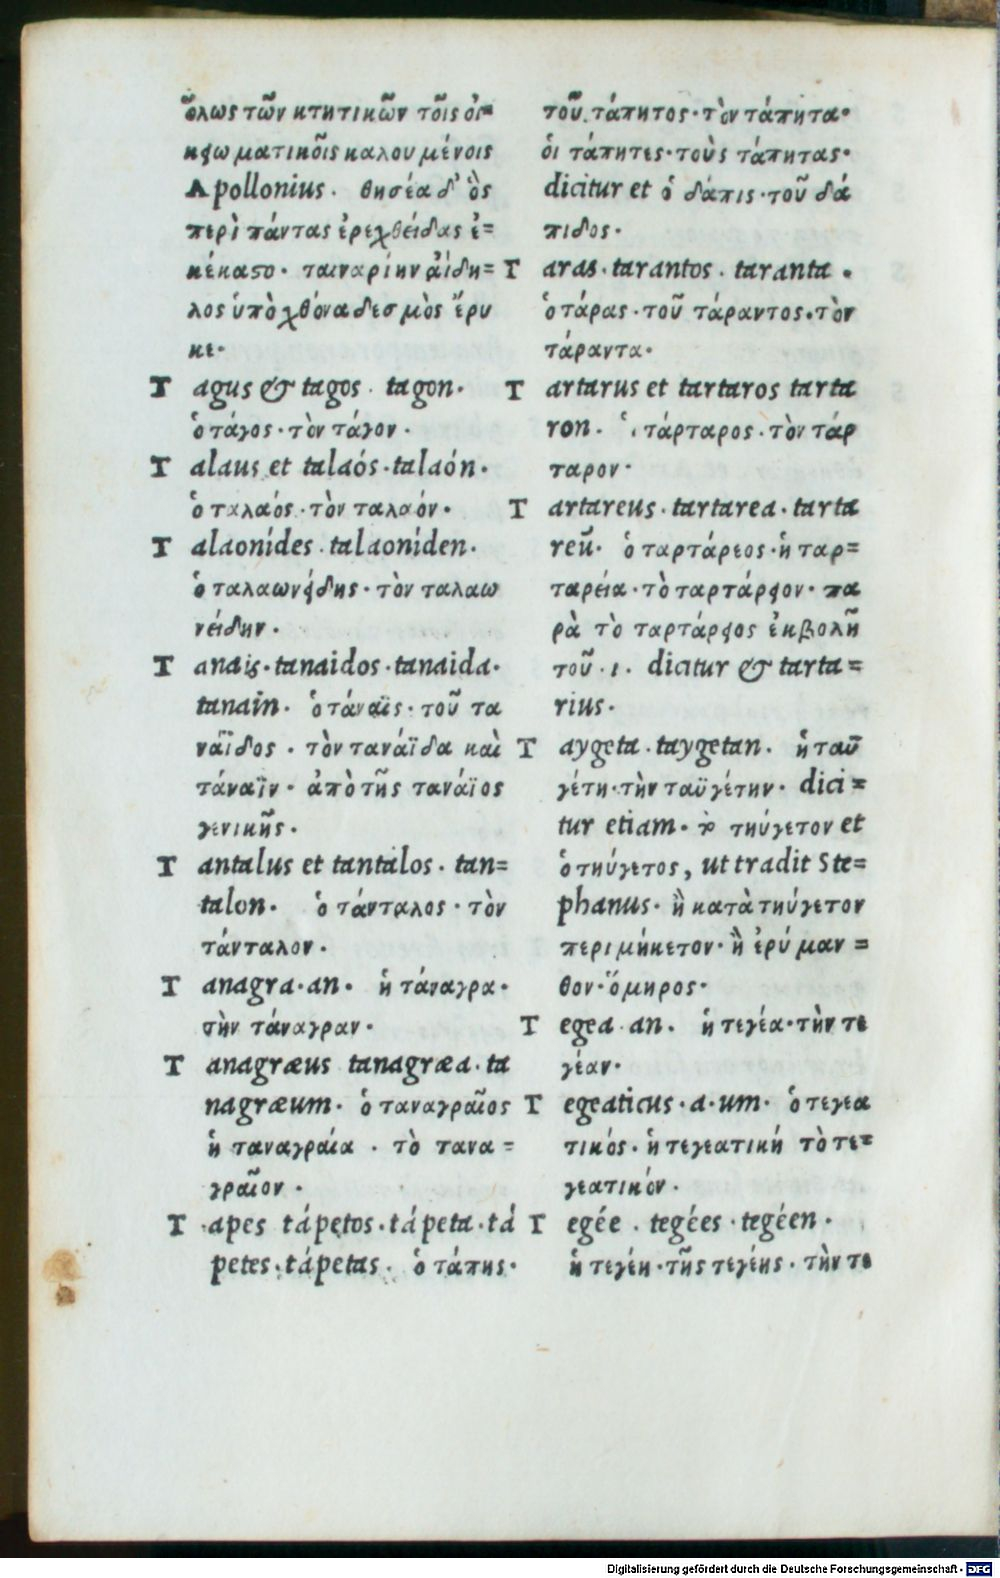 ὅλως τῶν κτητικῶν τοῖς οἰ-
κειωματικοῖς καλουμένοις
Apollonius. θησέα δ' ὃς
περὶ πάντας ἐρεχθείδας ἐ=
κέκαστο. ταιναρίην ἀΐδη=
λος ὑπὸ χθόνα δεσμὸς ἔρυ
κε.
T agus & tagos. tagon.
ὁ τάγος. τὸν τάγον.
T alaus et talaós. talaón.
ὁ ταλαός. τὸν ταλαόν.
T alaonídes. talaoníden.
ὁ ταλαωνείδης. τὸν ταλαω
νείδην.
T anais. tanaidos. tanaida.
tanain. ὁ τάναϊς. τοῦ τα
νάϊδος. τὸν τανάϊδα καὶ
τάναϊν. ἀπὸ τῆς τανάϊος
γενικῆς.
T antalus et tantalos. tan=
talon. ὁ τάνταλος. τὸν
τάνταλον.
T anagra. an. ἡ τάναγρα.
τὴν τάναγραν.
T anagræus tanagræa. ta
nagræum. ὁ ταναγραῖος
ἡ ταναγραία. τὸ τανα=
γραῖον.
T apes tápetos. tápeta. tá
petes. tápetas. ὁ τάπης.
τοῦ τάπητος. τὸν τάπητα.
οἱ τάπητες. τοὺς τάπητας.
dicitur et ὁ δάπις. τοῦ δά
πιδος.
T aras. tarantos. taranta.
ὁ τάρας. τοῦ τάραντος. τὸν
τάραντα.
T artarus et tartaros tarta
ron. ὁ τάρταρος. τὸν τάρ
ταρον.
T artareus. tartarea. tarta
reũ. ὁ ταρτάρεος. ἡ ταρ=
ταρεία. τὸ ταρτάρειον. πα
ρὰ τὸ ταρτάρειος ἐκβολῇ
τοῦ. ι. dicitur & tarta=
rius.
T aygeta. taygetan. ἡ ταϋ
γέτη. τὴν ταϋγέτην. dici=
tur etiam. τὸ τηύγετον et
ὁ τηύγετος, ut tradit Ste=
phanus. ἢ κατὰ τηύγετον
περιμήκετον. ἢ ἐρύμαν=
θον. ὅμηρος.
T egea an. ἡ τεγέα. τὴν τε
γέαν.
T egeaticus. a. um. ὁ τεγεα
τικός. ἡ τεγεατική τὸ τε=
γεατικόν.
T egée. tegées. tegéen.
ἡ τεγέη. τῆς τεγέης. τὴν τε
Digitalisierung gefördert durch die Deutsche Forschungsgemeinschaft - DFG